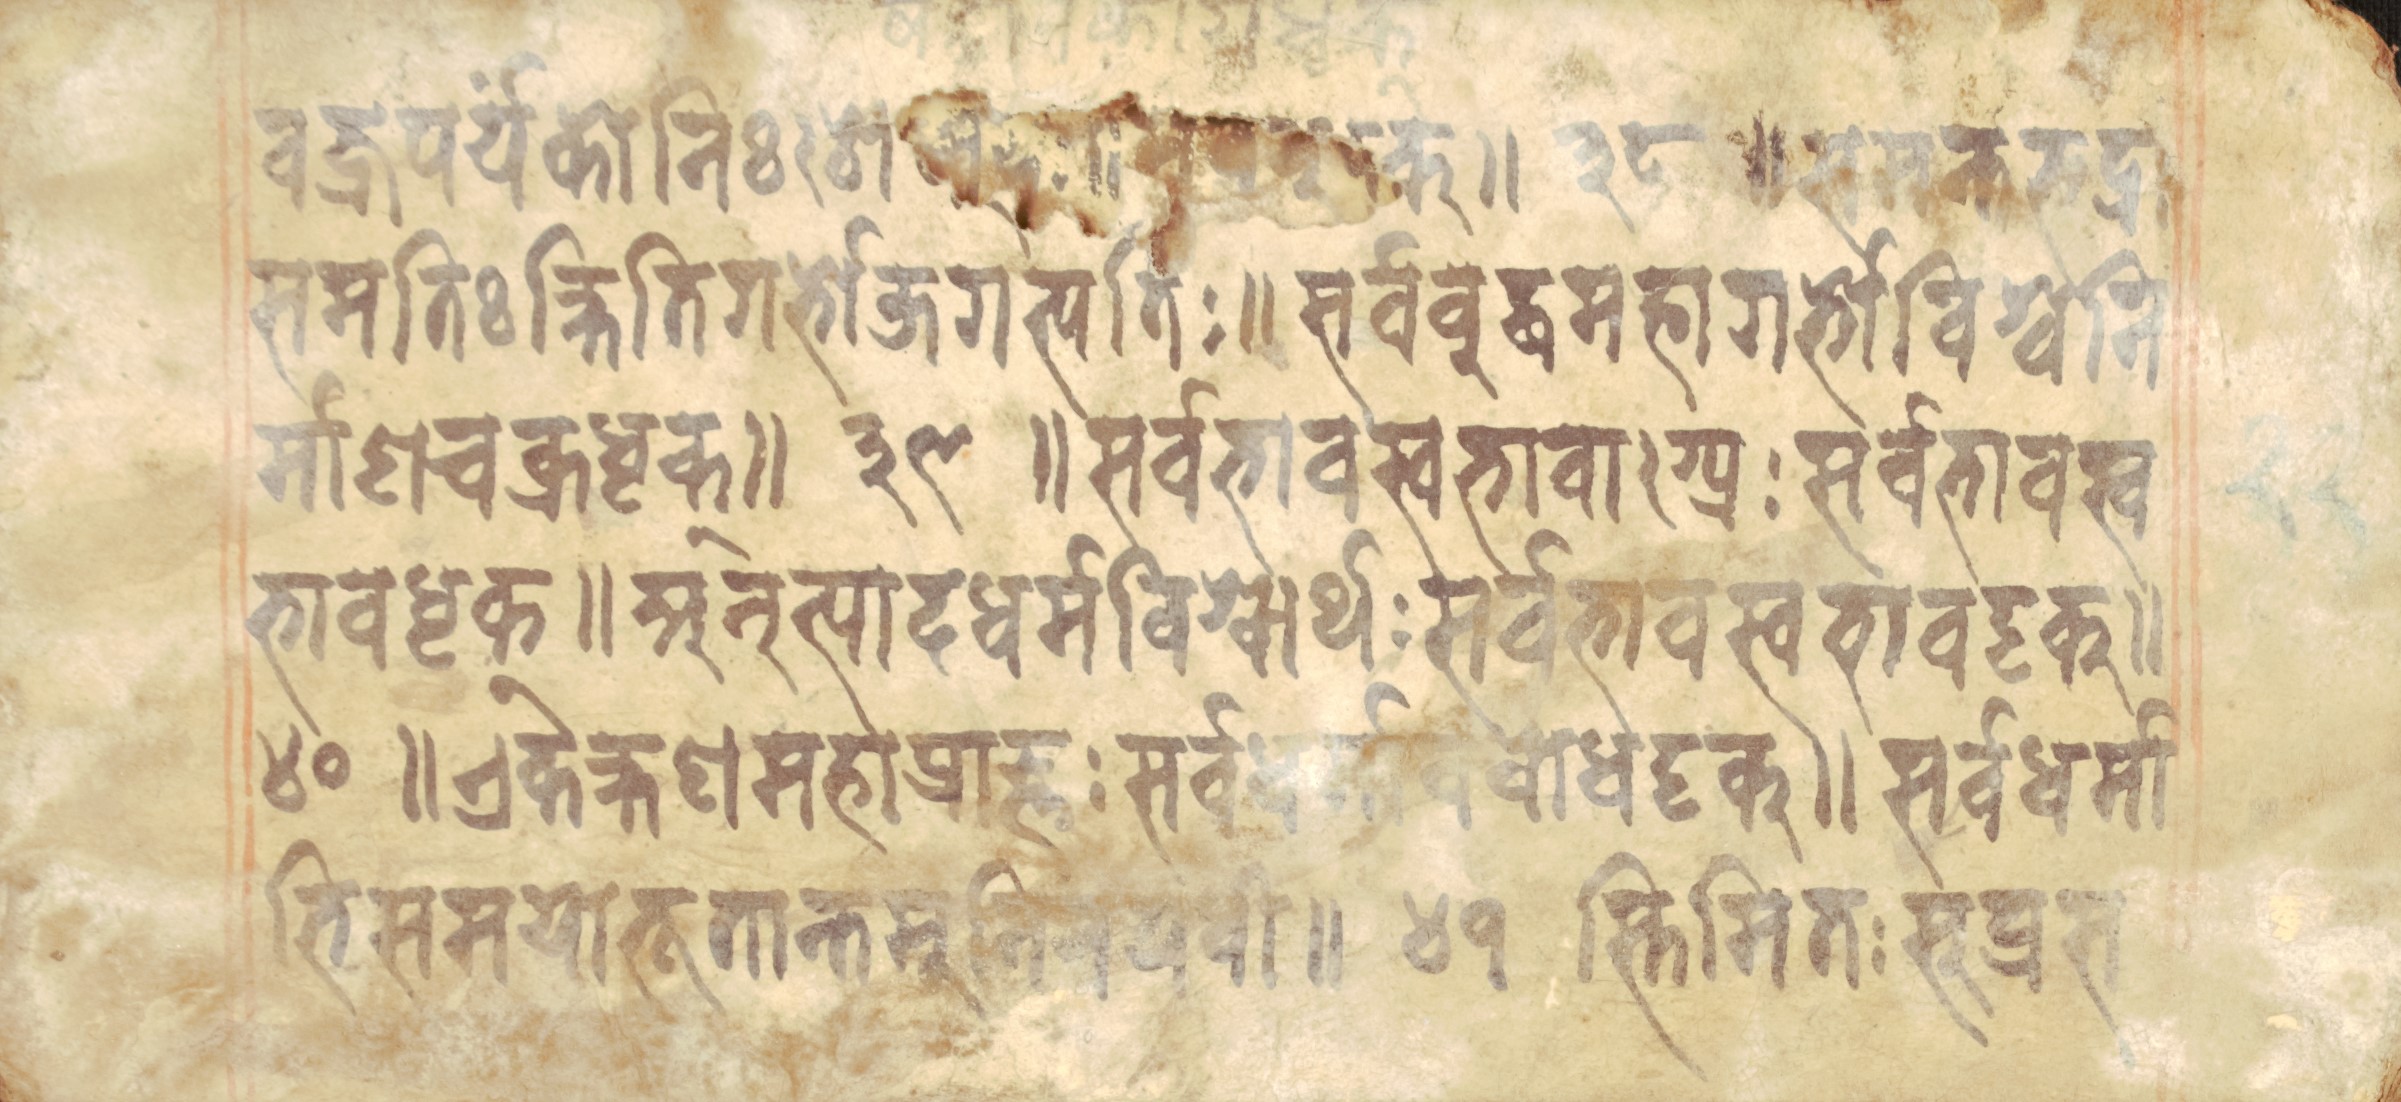 वज्रपर्यंको निःशेष ॥ धृक् ॥ ३८ ॥ समन्तभद्र
सुमतिः क्षितिगर्भो जगत्पतिः ॥ सर्वबुद्धमहागर्भो विश्वनि
र्माणचक्रधृक् ॥ ३९ ॥ सर्वभावस्वभावाग्र्यः सर्वभावस्व
भावधृक् ॥ अनुत्पादधर्मविश्वार्थः सर्वभावस्वभावदृक् ॥
४० ॥ एकक्षणमहाप्राज्ञः सर्वधर्मावबोधदृक् ॥ सर्वधर्मा
भिसमयो भूतान्तमुनि ॥ ४१ स्तिमितः सुप्रस